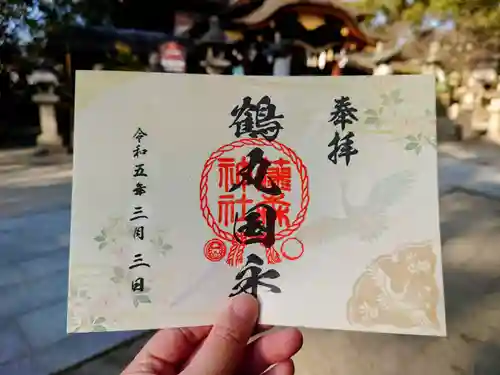 奉拝
鶴丸国永
藤森
神社
令和五年三月三日